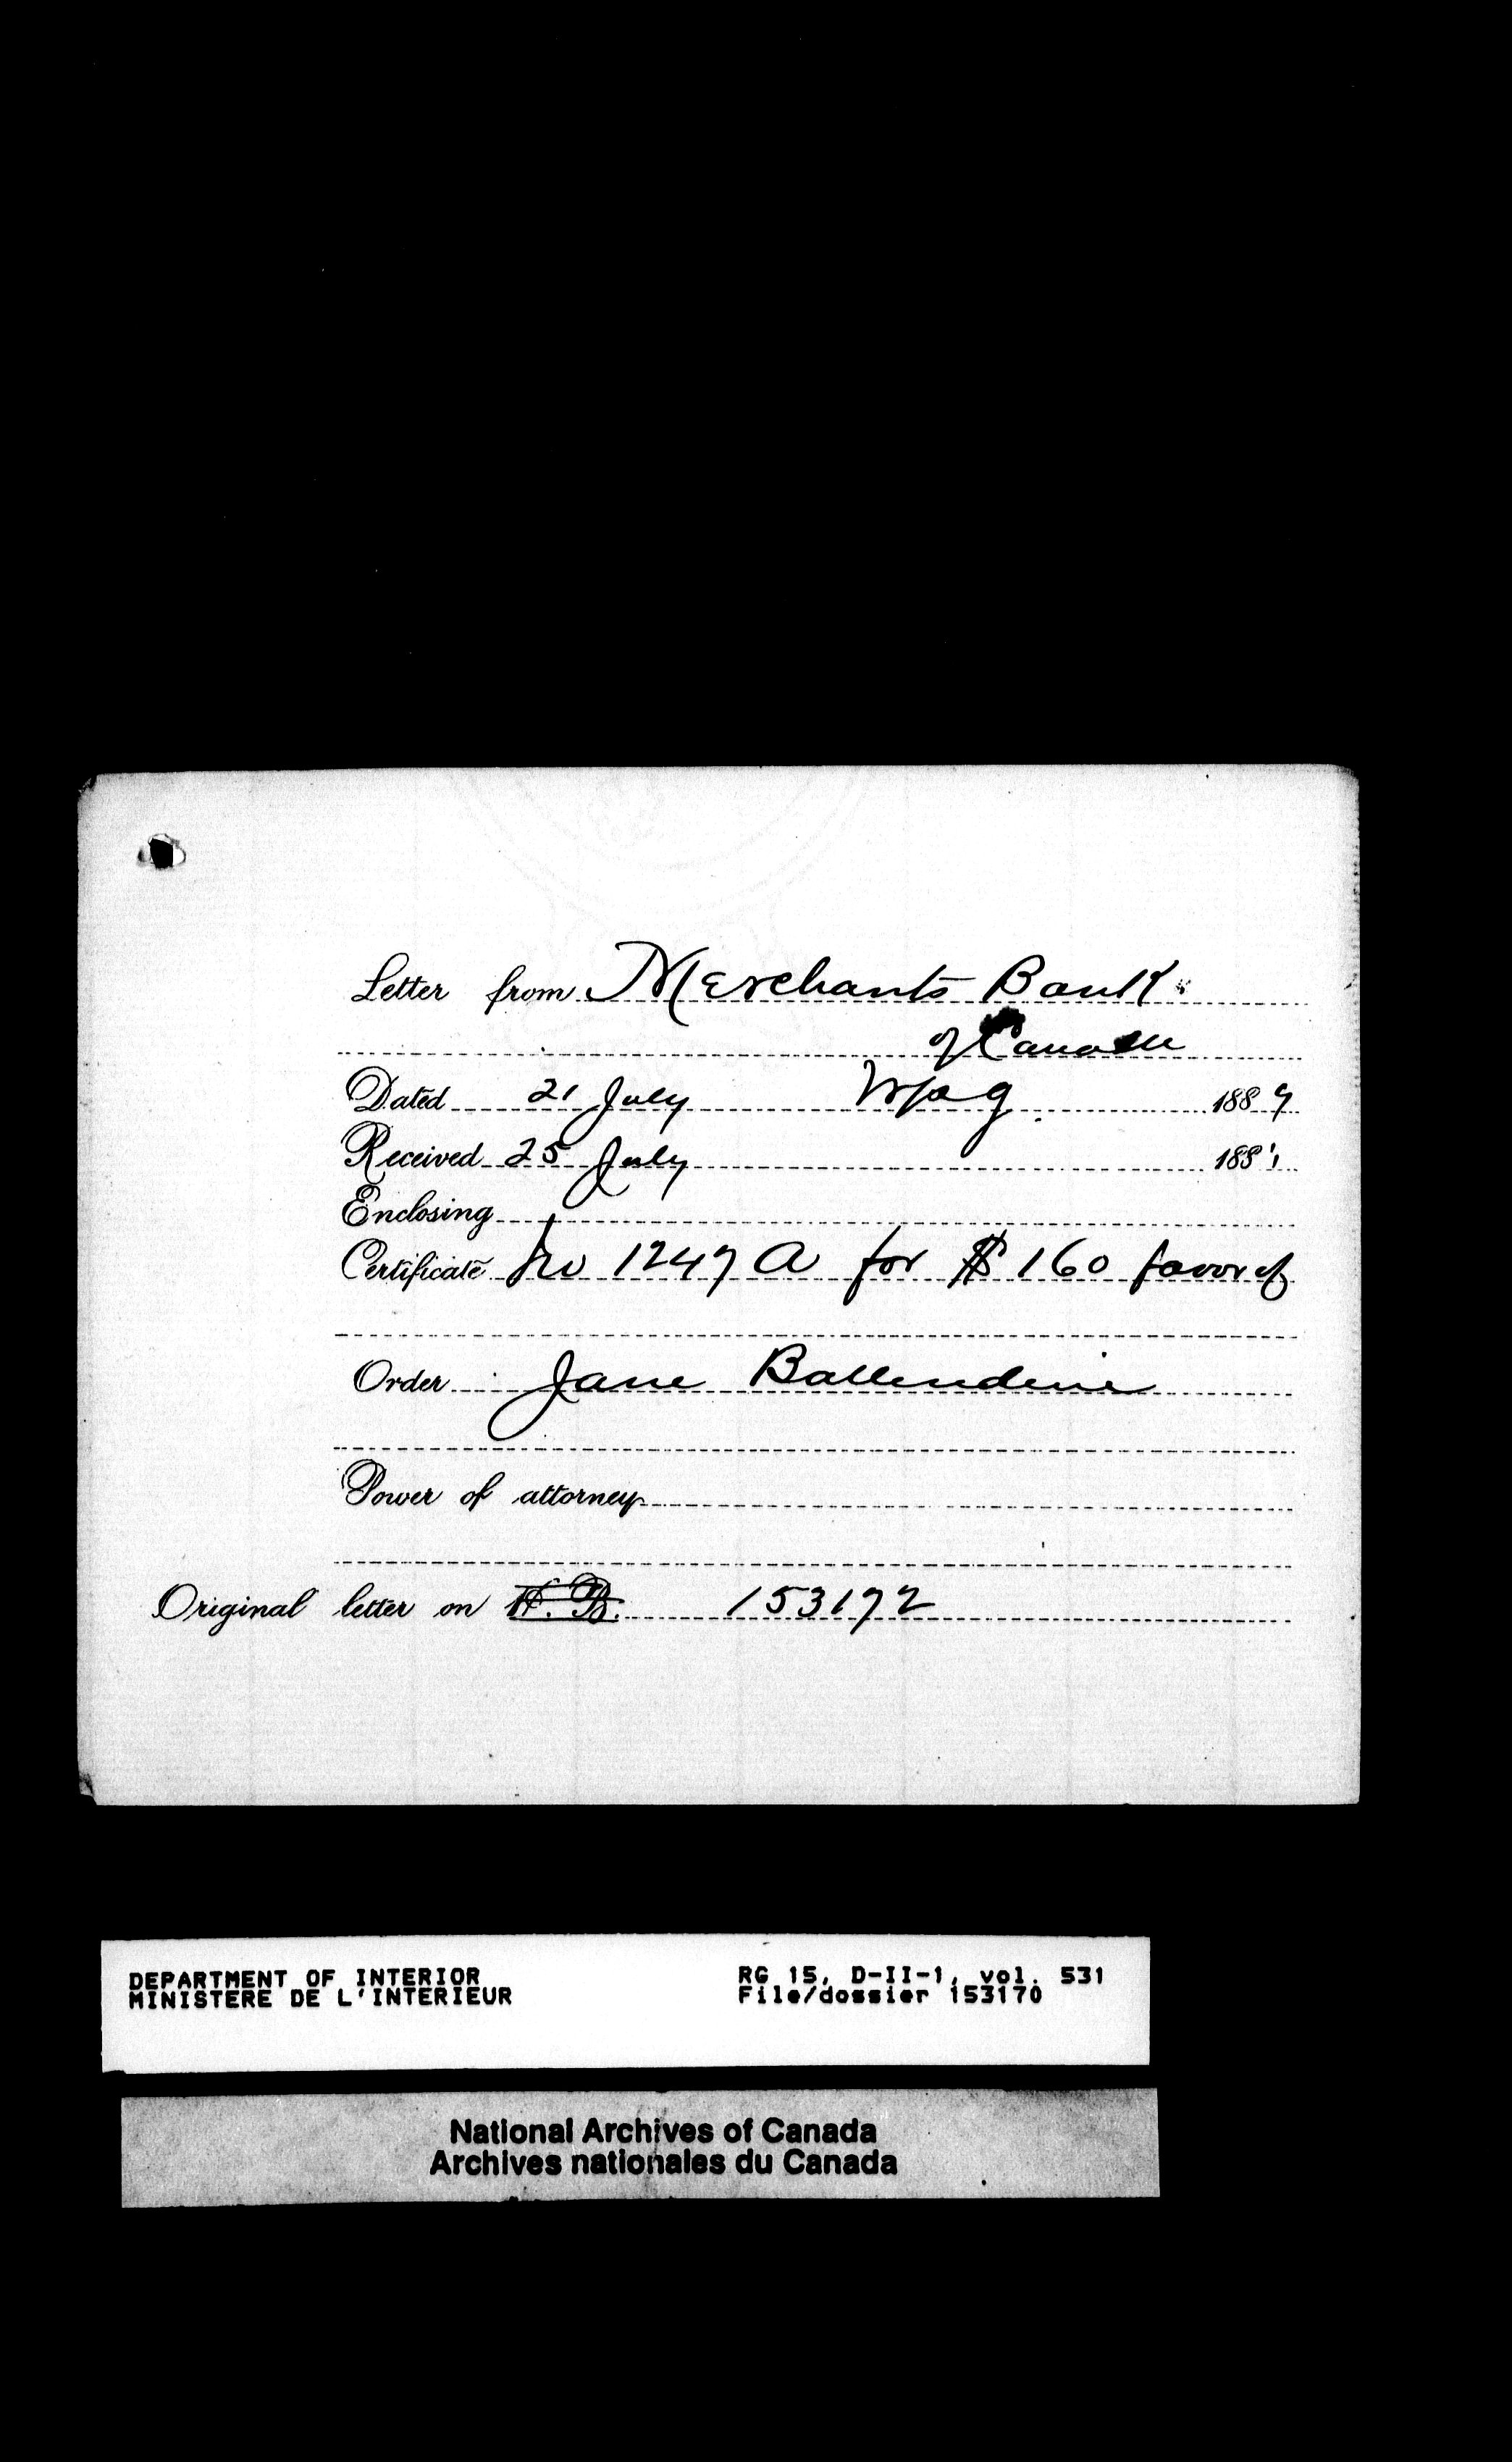 Letter from Merchants Bank
of Canada
Dated 21 July Wpg. 1887
Received 25 July 188
Enclosing
Certificate No 1247 A for $160 favor of
Order Jane Ballendine
Power of attorney
Original letter on H.B. 153172
DEPARTMENT OF INTERIOR RG 15, D-II-1, vol. 531
MINISTERE DE L'INTERIEUR File/dossier 153170
National Archives of Canada
Archives nationales du Canada